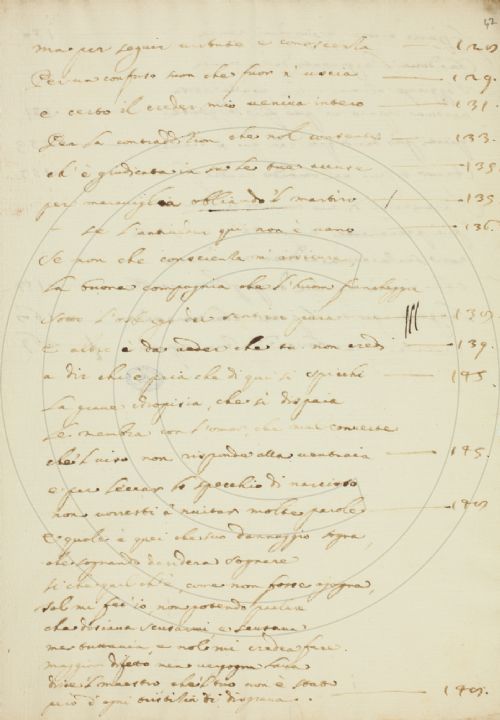 42
ma per seguir virtute e conoscenza — 125
Per un confuso suon che fuor n' uscia — 129.
e certo il creder mio veniva intero — 131.
Per la contraddition, che nol consente — 133.
ch' è giudicata in su le tue accuse — 135
per maraviglia obliando 'l martiro — 135
se l'antiveder qui non è vano — 136.
Se non che conscienza m' assicura
La buona compagnia che l'huom francheggia
Sotto l' osbergo del sentirsi pura — 138
E altro è da veder che tu non credi — 139.
a dir chi è pria che di qui si spicchi — 145
La grave idropisia, che sì dispaia
Le membra con l'omor, che mal converte
che 'l viso non risponde alla ventraia — 145.
e per leccar lo specchio di narcisso
non vorresti à invitar molte parole — 140
E quale è quei che suo dannaggio sogna,
che sognando desidera sognare
si che quel ch'è, come non fosse agogna,
tal mi fec' io non potendo parlare
che disiava scusarmi, e scusava
me tuttavia, e nol mi credea fare.
maggior difetto men vergogna lava
disse 'l maestro che 'l tuo non è stato
però d' ogni tristitia ti disgrava. — 140.